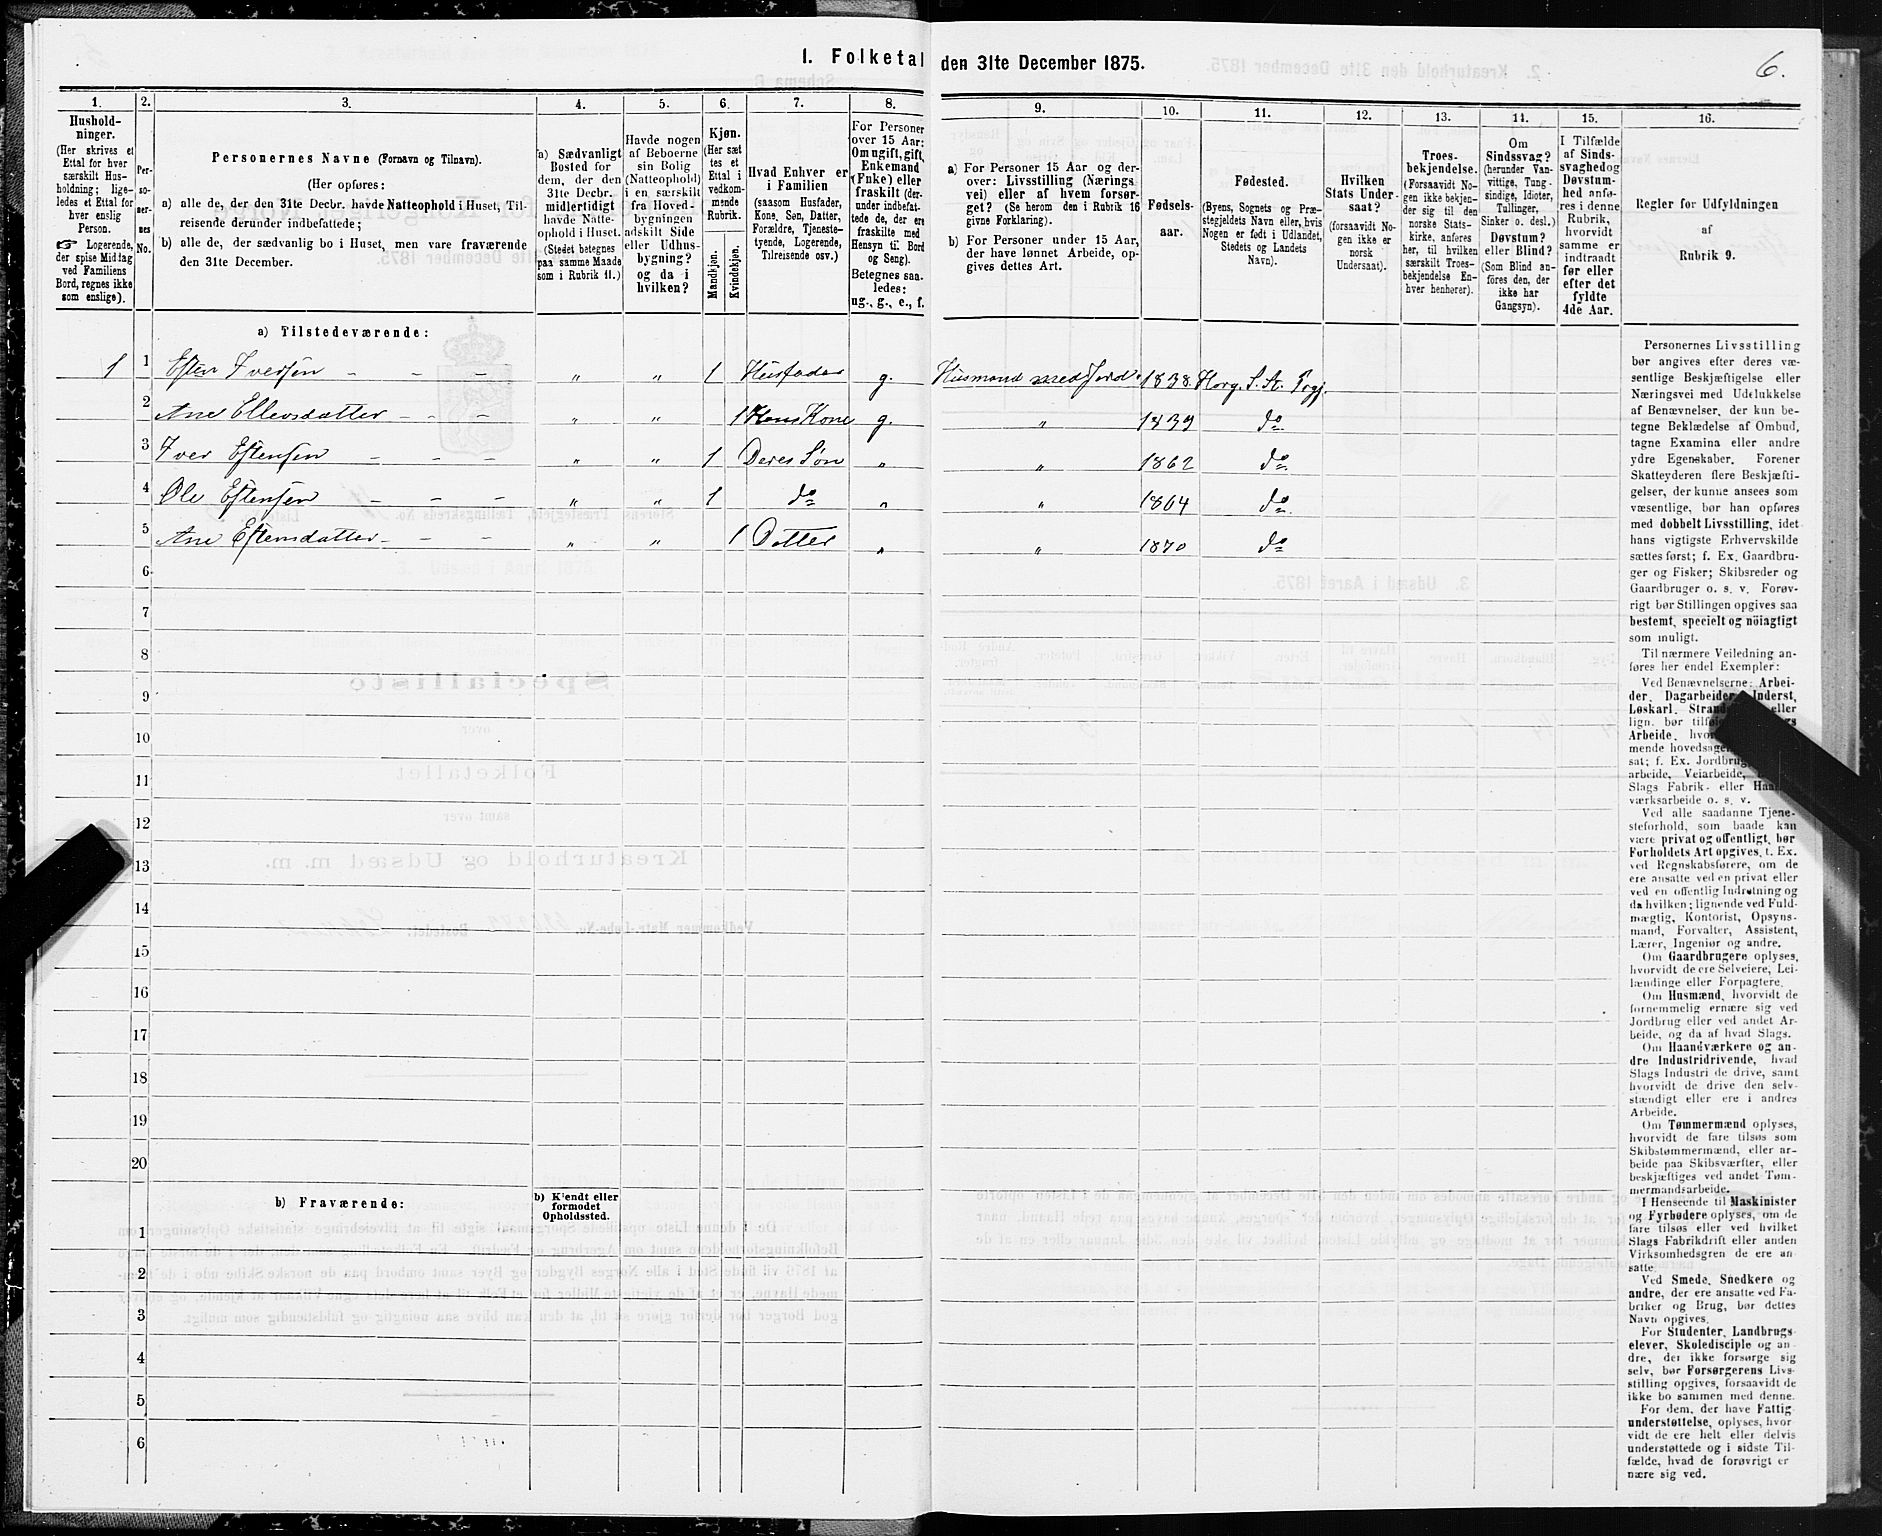 1. Folketal den 31te December 1875.
6.
1. 2. 3. 4. 5. 6. 7. 8. 9. 10. 11. 12. 13. 14. 15. 16.
Hushold-
ninger.
(Her skrives et
Ettal for hver
særskilt Hus-
holdning; lige-
ledes et Ettal for
hver enslig
Person.
☞ Logerende,
der spise Middag
ved Familiens
Bord, regnes ikke
som enslige).
Per-
so-
ner-
nes
No.
Personernes Navne (Fornavn og Tilnavn).
(Her opføres:
a) alle de, der den 31te Decbr. havde Natteophold i Huset, Til-
reisende derunder indbefattede;
b) alle de, der sædvanlig bo i Huset, men vare fraværende
den 31te December.
a) Sædvanligt
Bosted for
dem, der den
31te Decbr.
midlertidigt
havde Natte-
ophold i Huset.
(Stedet betegnes
paa samme Maade
som i Rubrik 11.)
Havde nogen
af Beboerne
sin Bolig
(Natteophold)
i en særskilt
fra Hoved-
bygningen
adskilt Side
eller Udhus-
bygning?
og da i
hvilken?
Kjøn.
(Her sæt
tes et
Ettal i
vedkom-
mende
Rubrik.
Mandkjøn.
Kvindekjøn.
Hvad Enhver er
i Familien
(saasom Husfader,
Kone, Søn, Datter,
Forældre, Tjeneste-
tyende, Logerende,
Tilreisende osv.)
For Personer
over 15 Aar:
Om ugift, gift,
Enkemand
(Enke) eller
fraskilt (der-
under indbefat-
tede de, der ere
fraskilte med
Hensyn til Bord
og Seng).
Betegnes saa-
ledes:
ug., g., e., f.
a) For Personer 15 Aar og der-
over: Livsstilling (Nærings
vei) eller af hvem forsør-
get? (Se herom den i Rubrik 16
givne Forklaring).
b) For Personer under 15 Aar,
der have lønnet Arbeide, op-
gives dettes Art.
Fødsels-
aar.
Fødested.
(Byens, Sognets og Præ-
stegjeldets Navn eller, hvis
Nogen er født i Udlandet,
Stedets og Landets
Navn).
Hvilken
Stats Under-
saat?
(forsaavidt No-
gen ikke er
norsk
Undersaat).
Troes-
bekjendelse.
(Forsaavidt No-
gen ikke bekjen-
der sig til den
norske Stats-
kirke, anføres
her, til hvilken
særskilt Troes-
bekjendelse En-
hver henhører).
Om
Sindssvag?
(herunder Van-
vittige, Tung-
sindige, Idioter,
Tullinger,
Sinker o. desl.)
Døvstum?
eller Blind?
(Som Blind an-
føres den, der
ikke har
Gangsyn).
I Tilfælde
af Sinds-
svaghed og
Døvstum-
hed anfø-
res i denne
Rubrik,
hvorvidt
samme er
indtraadt
før eller
efter det
fyldte
4de Aar.
Regler for Udfyldningen
af
Rubrik 9.
a) Tilstedeværende:
1 1 Esten Iversen - - - „ „ 1 Husfader g. Husmand med Jord. 1838. Horg. S. St. Prgj.
2 Ane Ellevsdatter - - - „ „ 1 Hans Kone g. „ 1839 do
3 Iver Estensen - - - „ „ 1 Deres Søn „ „ 1862 do
4 Ole Estensen - - - „ „ 1 do „ „ 1864 do
5 Ane Estensdatter - - - „ „ 1 Datter „ „ 1870 do
6
7
8
9
10
11
12
13
14
15
16
17
18
19
20
b) Fraværende:
b) Kjendt eller
formodet
Opholdssted.
1
2
3
4
5
6
Personernes Livsstilling
bør angives efter deres væ-
sentlige Beskjæftigelse eller
Næringsvei med Udelukkelse
af Benævnelser, der kun be-
tegne Beklædelse af Ombud,
tagne Examina eller andre
ydre Egenskaber. Forener
Skatteyderen flere Beskjæfti-
gelser, der kunne ansees som
væsentlige, bør han opføres
med dobbelt Livsstilling, idet
hans vigtigste Erhvervskilde
sættes først; f. Ex. Gaardbru-
ger og Fisker; Skibsreder og
Gaardbruger o. s. v. Forøv-
rigt bør Stillingen opgives saa
bestemt, specielt og nöiagtigt
som muligt.
Til nærmere Veiledning an-
føres her endel Exempler:
Ved Benævnelserne: Arbei-
der, Dagarbeider, Inderst,
Løskarl, eller
lign. bør
Arbeide,
mende
sat; f. Ex.
arbeide, Veiarbeide,
Slags Fabrik- eller
værksarbeide o. s. v.
Ved alle saadanne Tjene-
steforhold, som baade kan
være privat og offentligt, bør
Forholdets Art opgives, t. Ex.
ved Regnskabsførere, om de
ere ansatte ved en privat eller
ved en offentlig Indretning og
da hvilken; lignende ved Fuld-
mægtig, Kontorist, Opsyns-
mand, Forvalter, Assistent,
Lærer, Ingeniør og andre.
Om Gaardbrugere oplyses,
hvorvidt de ere Selveiere, Lei-
lændinge eller Forpagtere.
Om Husmænd, hvorvidt de
fornemmelig ernære sig ved
Jordbrug eller ved andet Ar-
beide, og da af hvad Slags.
Om Haandværkere og an-
dre Industridrivende, hvad
Slags Industri de drive, samt
hvorvidt de drive den selv-
stændigt eller ere i andres
Arbeide.
Om Tømmermænd oplyses,
hvorvidt de fare tilsøs som
Skibstømmermænd, eller ar-
beide paa Skibsværfter, eller
beskjæftiges ved andet Tøm-
mermandsarbeide.
I Henseende til Maskinister
og Fyrbødere oplyses, om de
fare tilsøs eller ved hvilket
Slags Fabrikdrift eller anden
Virksomhedsgren de ere an-
satte.
Ved Smede, Snedkere og
andre, der ere ansatte ved Fa-
briker og Brug, bør dettes
Navn opgives.
For Studenter, Landbrugs-
elever, Skoledisciple og an-
dre, der ikke forsørge sig
selv, bør Forsørgerens Livs-
stilling opgives, forsaavidt de
ikke bo sammen med denne.
For dem, der have Fattig-
understøttelse, oplyses, hvor-
vidt de ere helt eller delvis
understøttede og i sidste Til-
fælde, hvad de forøvrigt er
nære sig ved.